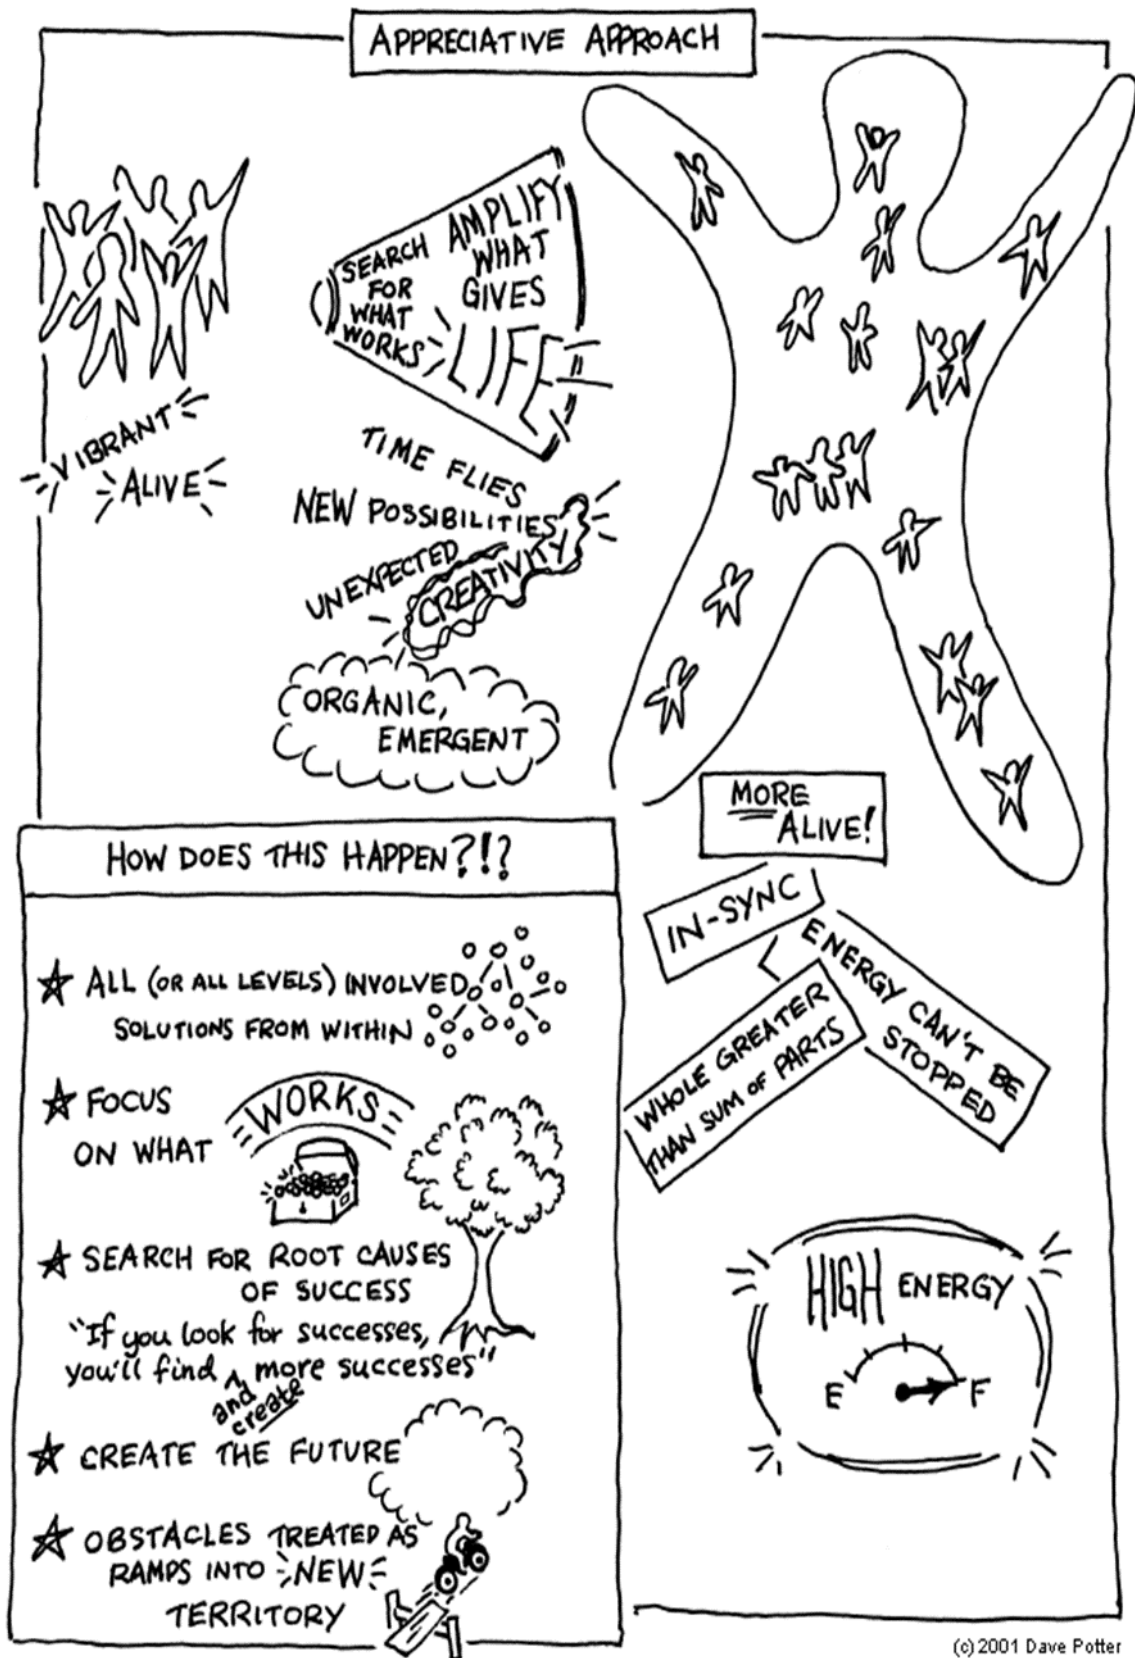 APPRECIATIVE APPROACH
SEARCH
FOR
WHAT
WORKS
AMPLIFY
WHAT
GIVES
LIFE
VIBRANT
ALIVE
TIME FLIES
NEW POSSIBILITIES
UNEXPECTED
CREATIVITY
ORGANIC,
EMERGENT
MORE
ALIVE!
IN-SYNC
ENERGY CAN'T BE
STOPPED
WHOLE GREATER
THAN SUM OF PARTS
HIGH ENERGY
E F
HOW DOES THIS HAPPEN?!?
ALL (OR ALL LEVELS) INVOLVED
SOLUTIONS FROM WITHIN
FOCUS
ON WHAT
WORKS
SEARCH FOR ROOT CAUSES
OF SUCCESS
"If you look for successes,
you'll find more successes"
and
create
CREATE THE FUTURE
OBSTACLES TREATED AS
RAMPS INTO NEW
TERRITORY
(c) 2001 Dave Potter